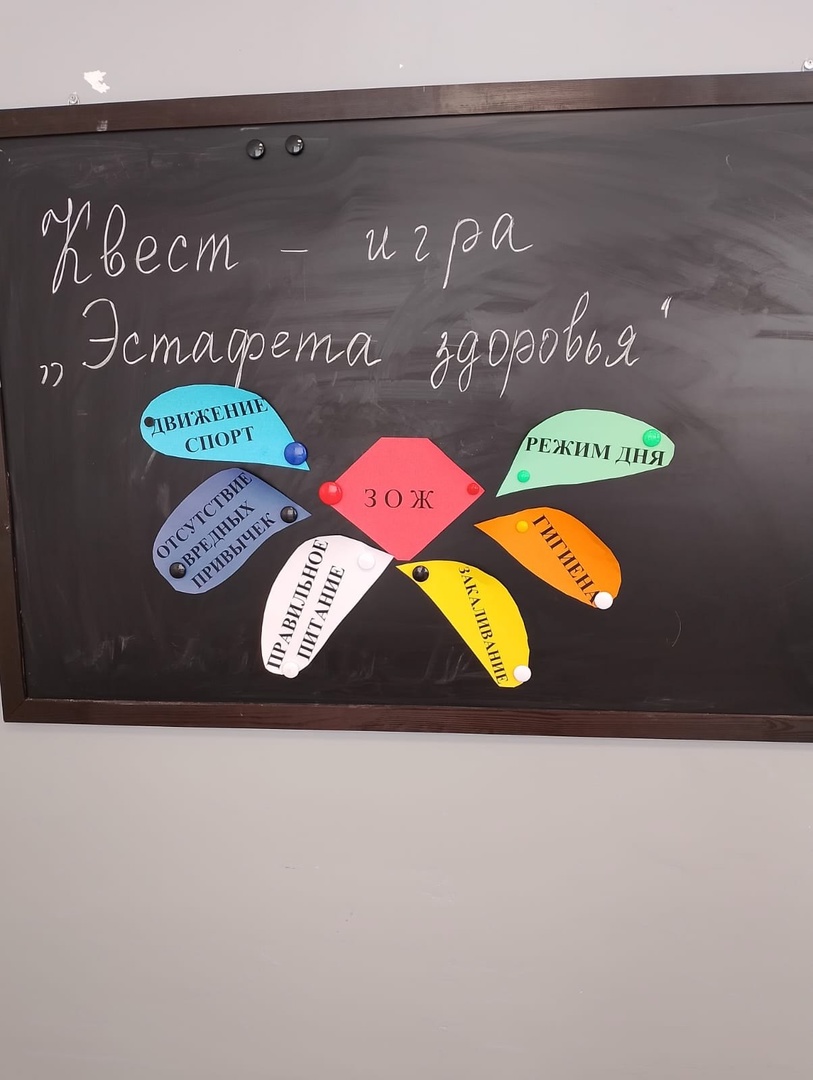 Квест - игра
„Эстафета здоровья“
ДВИЖЕНИЕ
СПОРТ
ОТСУТСТВИЕ
ВРЕДНЫХ
ПРИВЫЧЕК
ПРАВИЛЬНОЕ
ПИТАНИЕ
ЗОЖ
ЗАКАЛИВАНИЕ
ГИГИЕНА
РЕЖИМ ДНЯ